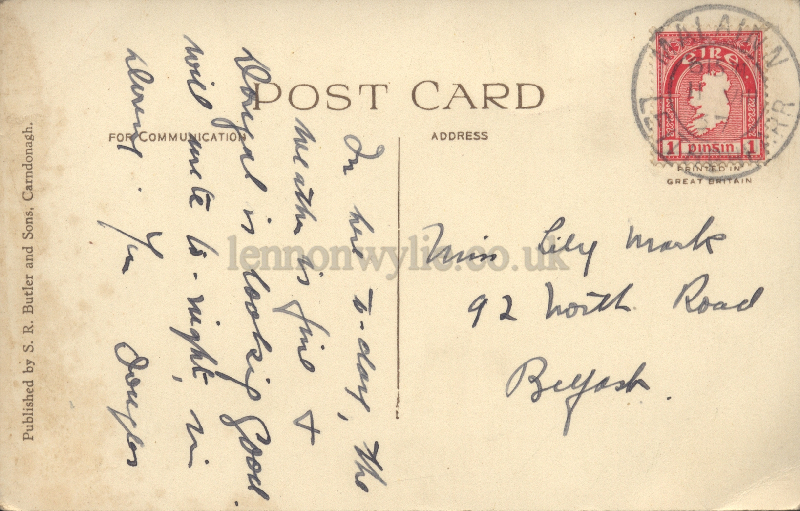 POST CARD
FOR COMMUNICATION
ADDRESS
In here to-day, the
weather is fine &
Donegal is looking good.
will write to-night, in
Derry. Yrs
Douglas
Miss Lily Mark
92 North Road
Belfast.
ÉIRE
1 PINGIN 1
MALAINN
PRINTED IN
GREAT BRITAIN
Published by S. R. Butler and Sons, Carndonagh.
lennonwylie.co.uk